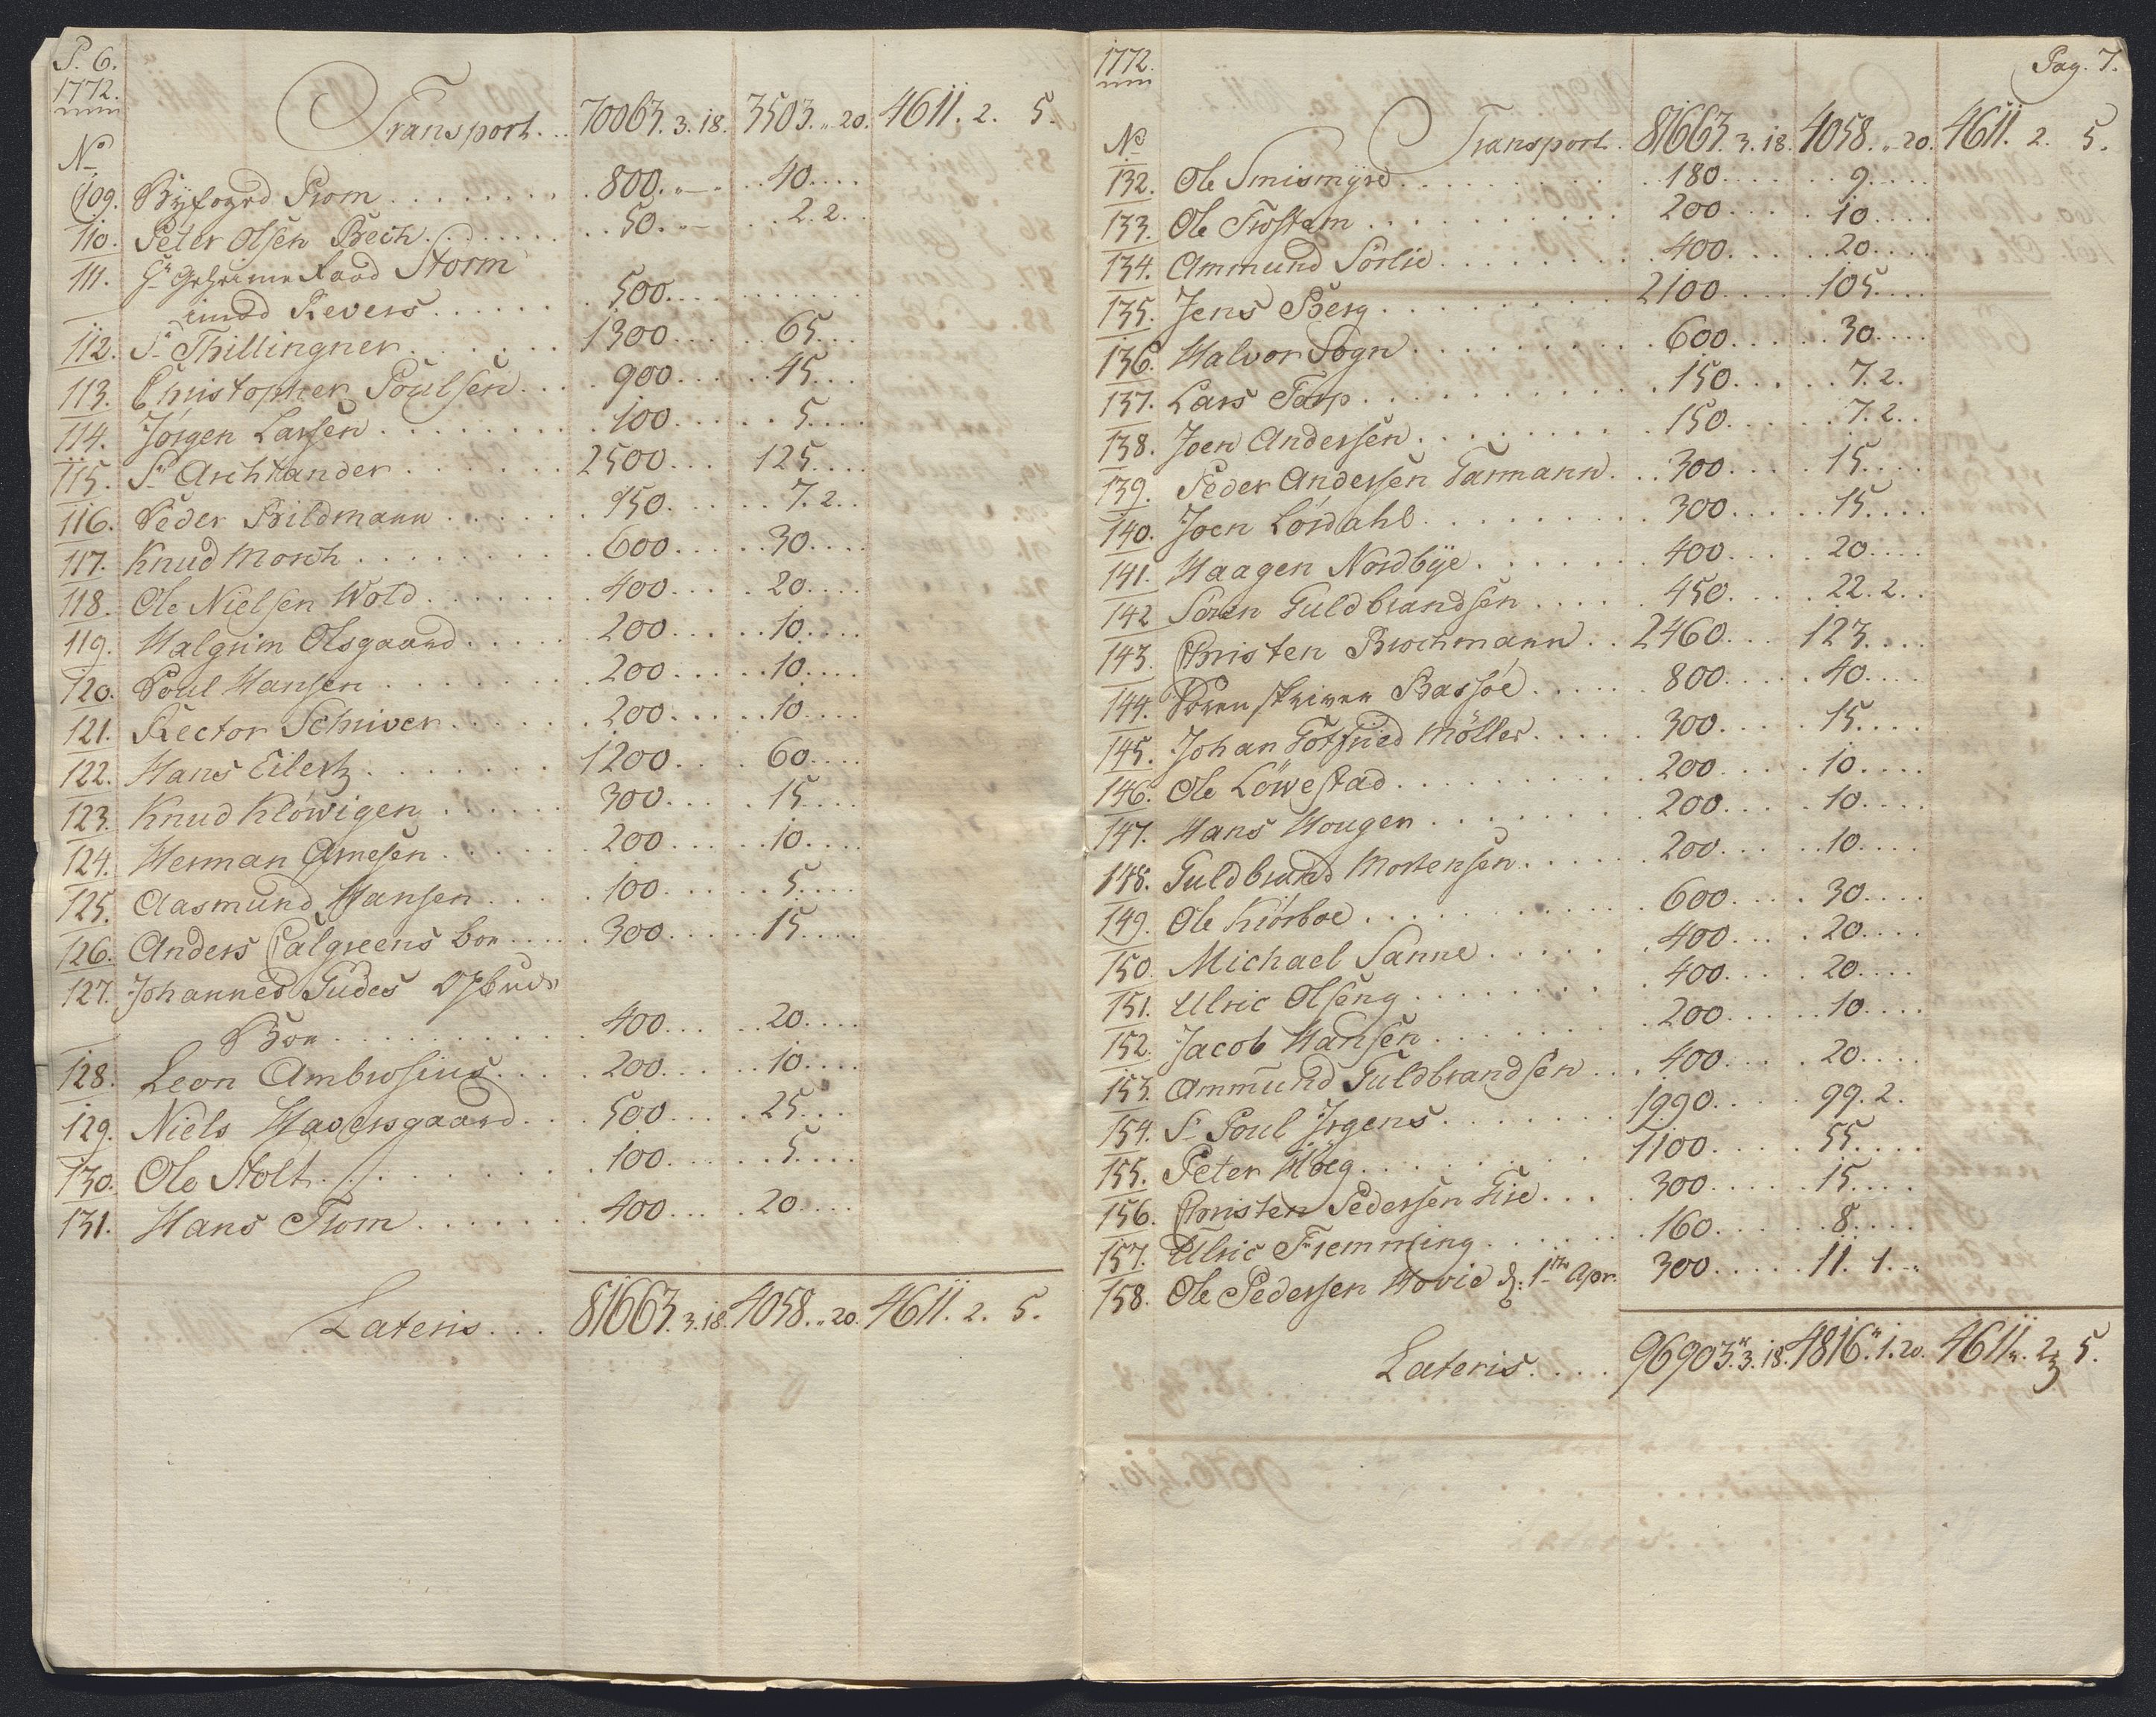 P. 6.
1772.
Transport... 70063. 3. 18. 3503. „ 20. 4611. 2. 5.
No
109. Byfogd Prom . . . 800. „ — 40. . . .
110. Peter Olsen Bech . . . 50. „ — 2. 2. .
111. Hr Geheime Raad Storm
imod Revers . . . 500. . . .
112. Sr Thillingner . . . 1300. . . . 65. . .
113. Christopher Poulsen . . . 900. . . . 45. . .
114. Jörgen Larsen . . . 100. . . . 5. . . .
115. Sr Archtander . . . 2500. . . 125. . . .
116. Peder Bildmann . . . 150. . . . 7. 2. .
117. Knud Morch . . . 600. . . . 30. . . .
118. Ole Nielsen Wold . . . 400. . . . 20. . . .
119. Halgrim Olsgaard . . . 200. . . . 10. . . .
120. Poul Hansen . . . 200. . . . 10. . . .
121. Rector Schriver . . . 200. . . . 10. . . .
122. Hans Eilertz . . . 1200. . . . 60. . . .
123. Knud Klöwigen . . . 300. . . . 15. . . .
124. Herman Arnesen . . . 200. . . . 10. . . .
125. Aasmund Hansen . . . 100. . . . 5. . . .
126. Anders Calgreens boe . . . 300. . . . 15. . . .
127. Johannes Gudes Opbuds
Boe . . . 400. . . . 20. . . .
128. Leon Ambrosius . . . 200. . . . 10. . . .
129. Niels Haversgaard . . . 500. . . . 25. . .
130. Ole Holt . . . 100. . . . 5. . . .
131. Hans From . . . 400. . . . 20. . . .
Lateris . . . 81663. 3. 18. 4058. „ 20. 4611. 2. 5.
1772.
Pag. 7.
Transport. 81663. 3. 18. 4058. „ 20. 4611. 2. 5.
No
132. Ole Smismyre . . . 180. . . . 9. . . .
133. Ole Trostem . . . 200. . . . 10. . . .
134. Ammund Sörlie . . . 400. . . . 20. . . .
135. Jens Berg . . . 2100. . . . 105. . . .
136. Halvor Sogn . . . 600. . . . 30. . . .
137. Lars Tarp . . . 150. . . . 7. 2.
138. Joen Andersen . . . 150. . . . 7. 2. .
139. Peder Andersen Garmann . . . 300. . . . 15. . . .
140. Joen Lördahl . . . 300. . . . 15. . . .
141. Haagen Nordbye . . . 400. . . . 20. . . .
142 Sören Guldbrandsen . . . 450. . . . 22. 2. .
143. Christen Brochmann . . 2460. . . 123. . . .
144. Sorenskriver Bassöe . . . 800. . . . 40. . . .
145. Johan Gotfried Möller . . . 300. . . . 15. . . .
146. Ole Löwestad . . . 200. . . . 10. . . .
147. Hans Hougen . . . 200. . . . 10. . . .
148. Guldbrand Mortensen . . . 200. . . . 10. . . .
149. Ole Kiörboe . . . 600. . . . 30. . . .
150. Michael Sanne . . . 400. . . . 20. . . .
151. Ulric Olseng . . . 400. . . . 20. . . .
152. Jacob Hansen . . . 200. . . . 10. . . .
153. Ammund Guldbrandsen . . . 400. . . . 20. . . .
154. Sr Poul Jrgens . . . 1990. . . . 99. 2.
155. Peter Höeg . . . 1100. . . . 55. . . .
156. Christen Pedersen Gise . . . 300. . . . 15. . . .
157. Ulric Fremming . . . 160. . . . 8. . . .
158. Ole Pedersen Hovie d: 1ste Apr. 300. . . . 11. 1. „
Lateris . . . . 96903. 3. 18. 4816. 1. 20. 4611. 2 5.